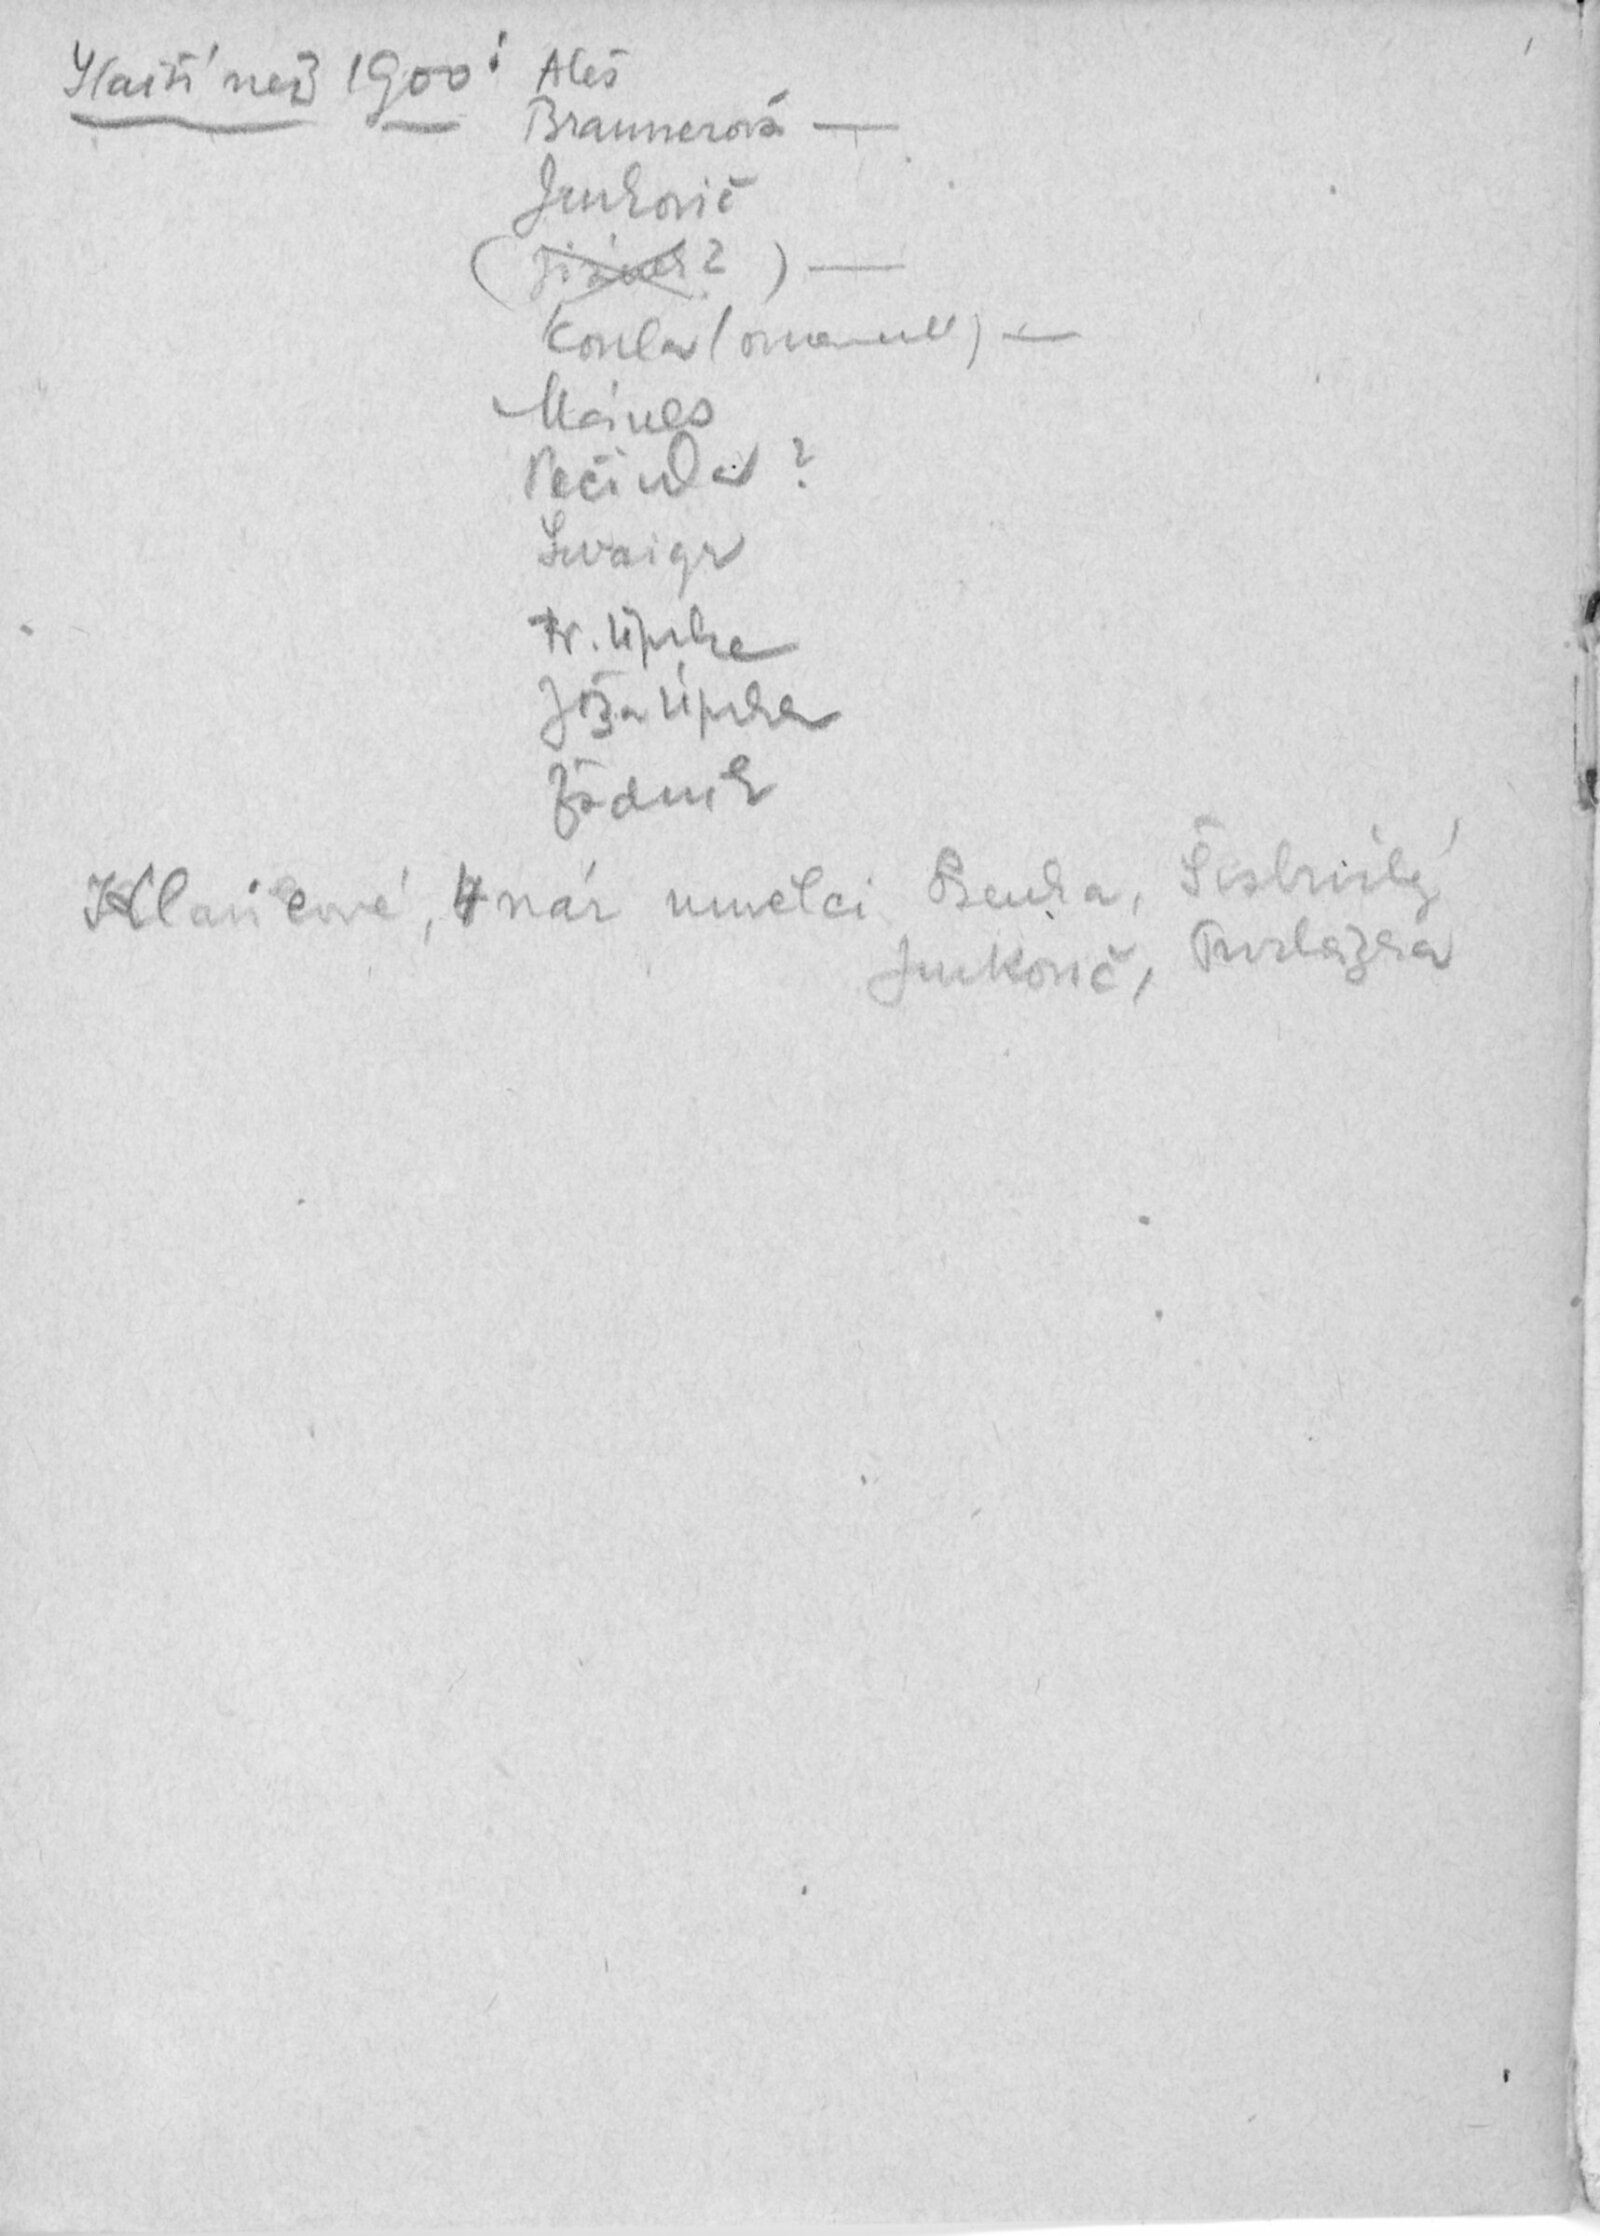 Starší než 1900: Aleš
Braunerová —
Jurkovič
( ? ) —
Koula (ornament) —
Mánes
Pečinka ?
Švaigr
Fr. Úprka
Joža Úprka
Žádník
, 4 nár umělci Benka,
Jurkovič,